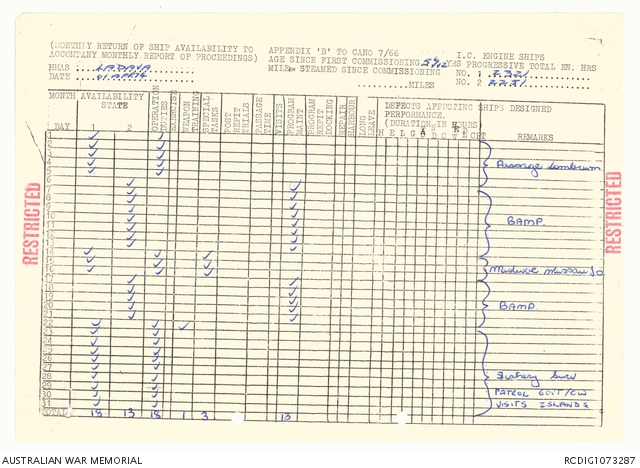 (MONTHLY RETURN OF SHIP AVAILABILITY TO
ACCOMPANY MONTHLY REPORT OF PROCEEDINGS)
HMAS LADAVA
DATE
APPENDIX 'B' TO CANO 7/66
AGE SINCE FIRST COMMISSIONING YRS
MILES STEAMED SINCE COMMISSIONING
MILES
I.C. ENGINE SHIPS
PROGRESSIVE TOTAL EN. HRS
NO. 1 2221
NO. 2 2221
MONTH
AVAILABILITY
STATE
DAY
2
OPERATION
DUTIES
EXERCISE
WEAPON
TRAINING
SPECIAL
TASKS
POST
REFIT
TRIALS
PASSAGE
TIME
VISITS
PROGRAM
MAINT
PROGRAM
REFIT
DOCKING
REPAIR
HARBOUR
LONG
LEAVE
DEFECTS AFFECTING SHIPS DESIGNED
PERFORMANCE.
(DURATION IN HOURS)
REMARKS
1
2
3
4
5
6
7
8
9
10
11
12
13
14
15
16
17
18
19
20
21
22
23
24
25
26
27
28
29
30
31
Passage Lombrum
BAMP.
BAMP
PATROL GOVT/CW
VISITS ISLANDS
TOTAL 18 13 18 1 3 13
RESTRICTED
RESTRICTED
AUSTRALIAN WAR MEMORIAL
RCDIG1073287